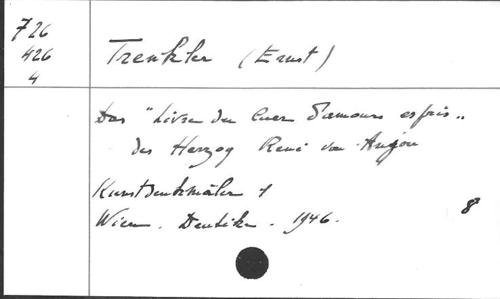 726
426
4
Trenkler (Ernst)
Das "Livre du Cuer d'amours espris"
des Herzog René von Anjou
Kunstdenkmäler 1
Wien. Deutike. 1946.
8